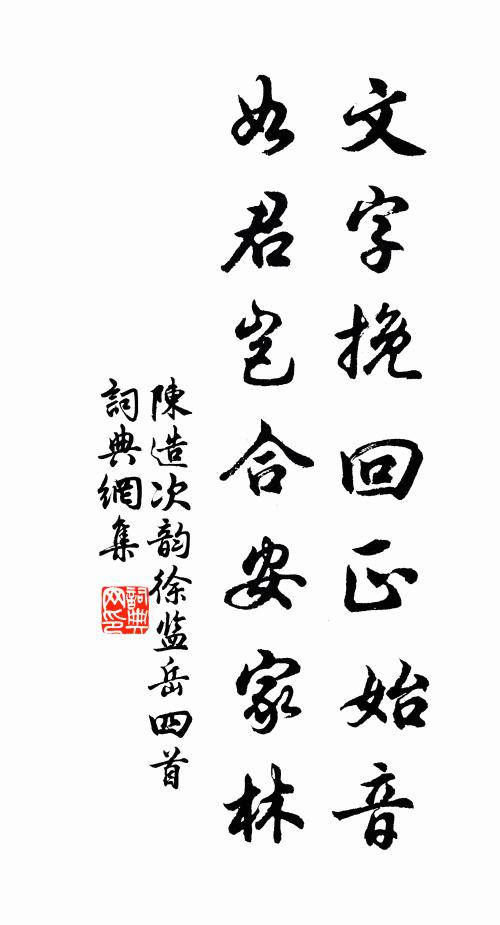 文字挽回正始音
如君岂合安家林
陳造次韵徐监岳四首
詞典網集
詞典
网印